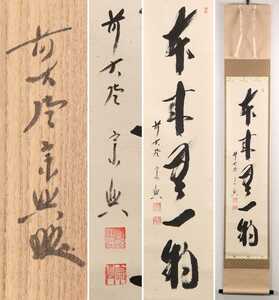 前大徳宗興
前大徳 宗興
本来無一物
前大徳 宗興
本来無一物
前大徳 宗興